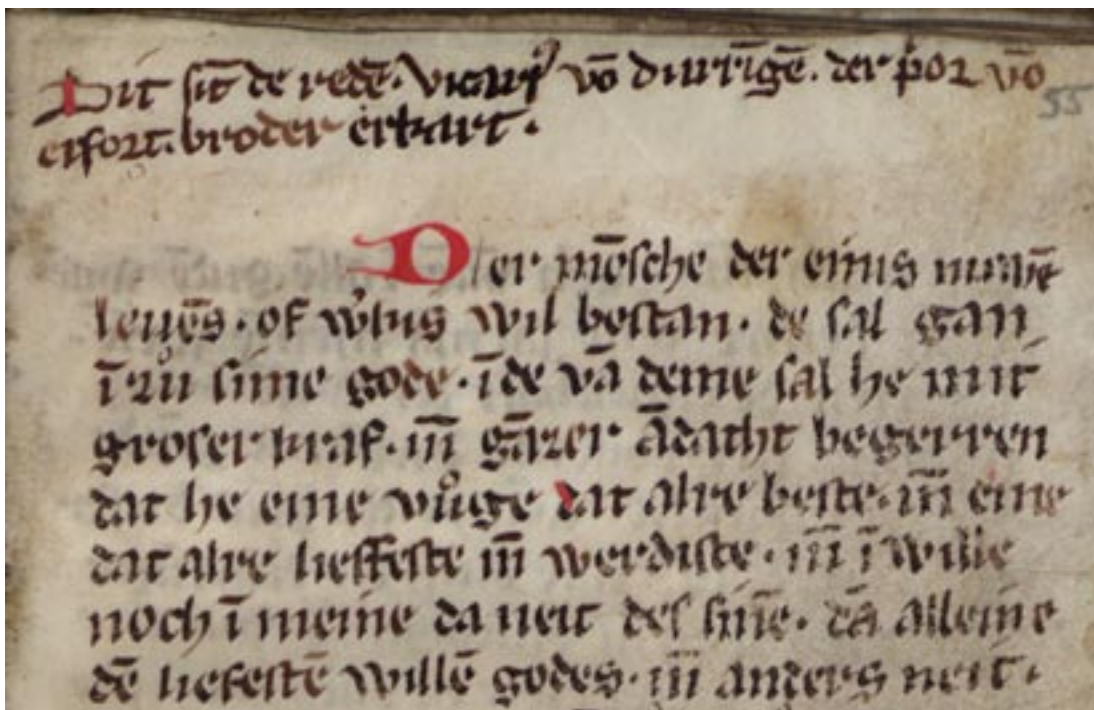 Dit sīt de redē. vicariꝰ vō durrīgē. der p̄or vō
erfort. broder erkart.
55
Der mēsche der einis nuwē
leuēs. of w̉kis wil bestan. de sal gan
ī zů sime gode. īde vā deme sal he mit
groser kraf. īn̄ gāzer ādacht begerren
dat he eme vůge dat alre beste. īn̄ eme
dat alre lieffeste īn̄ werdiste. īn̄ ī wille
noch ī meine da neit des sinē. dā alleine
dē liefestē willē godes. īn̄ anders neit.